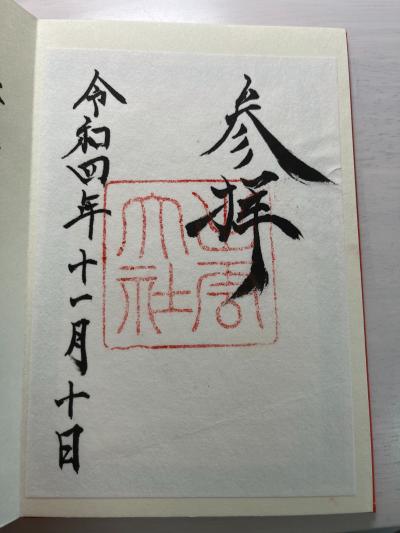 参拝
出雲
大社
令和四年十一月十日